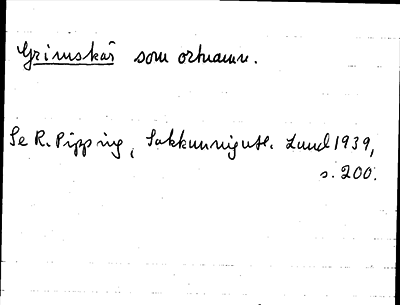 Grimskär som ortnamn.
Se R. Pipping, Sakkunnigutl. Lund 1939,
s. 200.